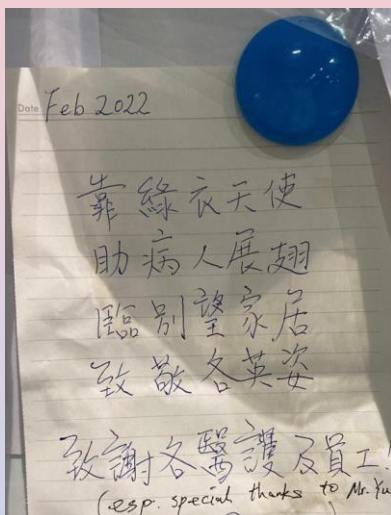 Date Feb 2022
靠綠衣天使
助病人展翅
臨別望家居
致敬各英姿
致謝各醫護及員工!
(esp. special thanks to Mr. Yu